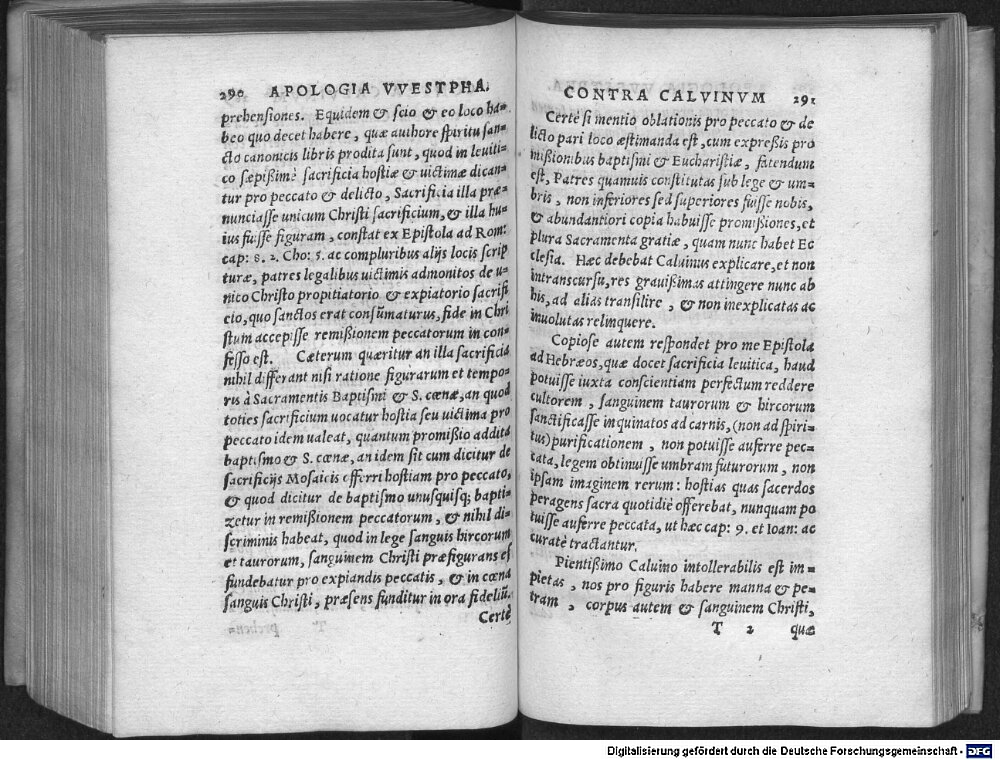 290 APOLOGIA VVESTPHA.
prehensiones. Equidem & scio & eo loco ha=
beo quo decet habere, quæ authore spiritu san=
cto canonicis libris prodita sunt, quod in leuiti=
co sæpißimè sacrificia hostiæ & uictimæ dican=
tur pro peccato & delicto, Sacrificia illa præ=
nunciasse unicum Christi sacrificium, & illa hu=
ius fuisse figuram, constat ex Epistola ad Rom:
cap: 8. 2. Cho: 5. ac compluribus alijs locis scrip
turæ, patres legalibus uictimis admonitos de u=
nico Christo propitiatorio & expiatorio sacrifi
cio, quo sanctos erat consũmaturus, fide in Chri
stum accepisse remißionem peccatorum in con=
fesso est. Cæterum quæritur an illa sacrificia
nihil differant nisi ratione figurarum et tempo=
ris à Sacramentis Baptismi & S. cœnæ, an quod
toties sacrificium uocatur hostia seu uictima pro
peccato idem ualeat, quantum promißio addita
baptismo & S. cœnæ, an idem sit cum dicitur de
sacrificijs Mosaicis offerri hostiam pro peccato,
& quod dicitur de baptismo unusquisq; bapti=
zetur in remißionem peccatorum, & nihil di=
scriminis habeat, quod in lege sanguis hircorum
et taurorum, sanguinem Christi præfigurans ef
fundebatur pro expiandis peccatis, & in cœna
sanguis Christi, præsens funditur in ora fideliũ.
Certè
CONTRA CALVINVM 291
Certè si mentio oblationis pro peccato & de
licto pari loco æstimanda est, cum expreßis pro
mißionibus baptismi & Eucharistiæ, fatendum
est, Patres quamuis constitutas sub lege & um=
bris, non inferiores sed superiores fuisse nobis,
& abundantiori copia habuisse promißiones, et
plura Sacramenta gratiæ, quam nunc habet Ec
clesia. Hæc debebat Caluinus explicare, et non
in transcursu, res grauißimas attingere nunc ab
his, ad alias transilire, & non inexplicatas ac
inuolutas relinquere.
Copiose autem respondet pro me Epistola
ad Hebræos, quæ docet sacrificia leuitica, haud
potuisse iuxta conscientiam perfectum reddere
cultorem, sanguinem taurorum & hircorum
sanctificasse inquinatos ad carnis, (non ad spiri=
tus) purificationem, non potuisse auferre pec=
cata, legem obtinuisse umbram futurorum, non
ipsam imaginem rerum: hostias quas sacerdos
peragens sacra quotidiè offerebat, nunquam po
tuisse auferre peccata, ut hæc cap: 9. et Ioan: ac
curatè tractantur.
Pientißimo Caluino intollerabilis est im=
pietas, nos pro figuris habere manna & pe=
tram, corpus autem & sanguinem Christi,
T 2 quæ
Digitalisierung gefördert durch die Deutsche Forschungsgemeinschaft - DFG